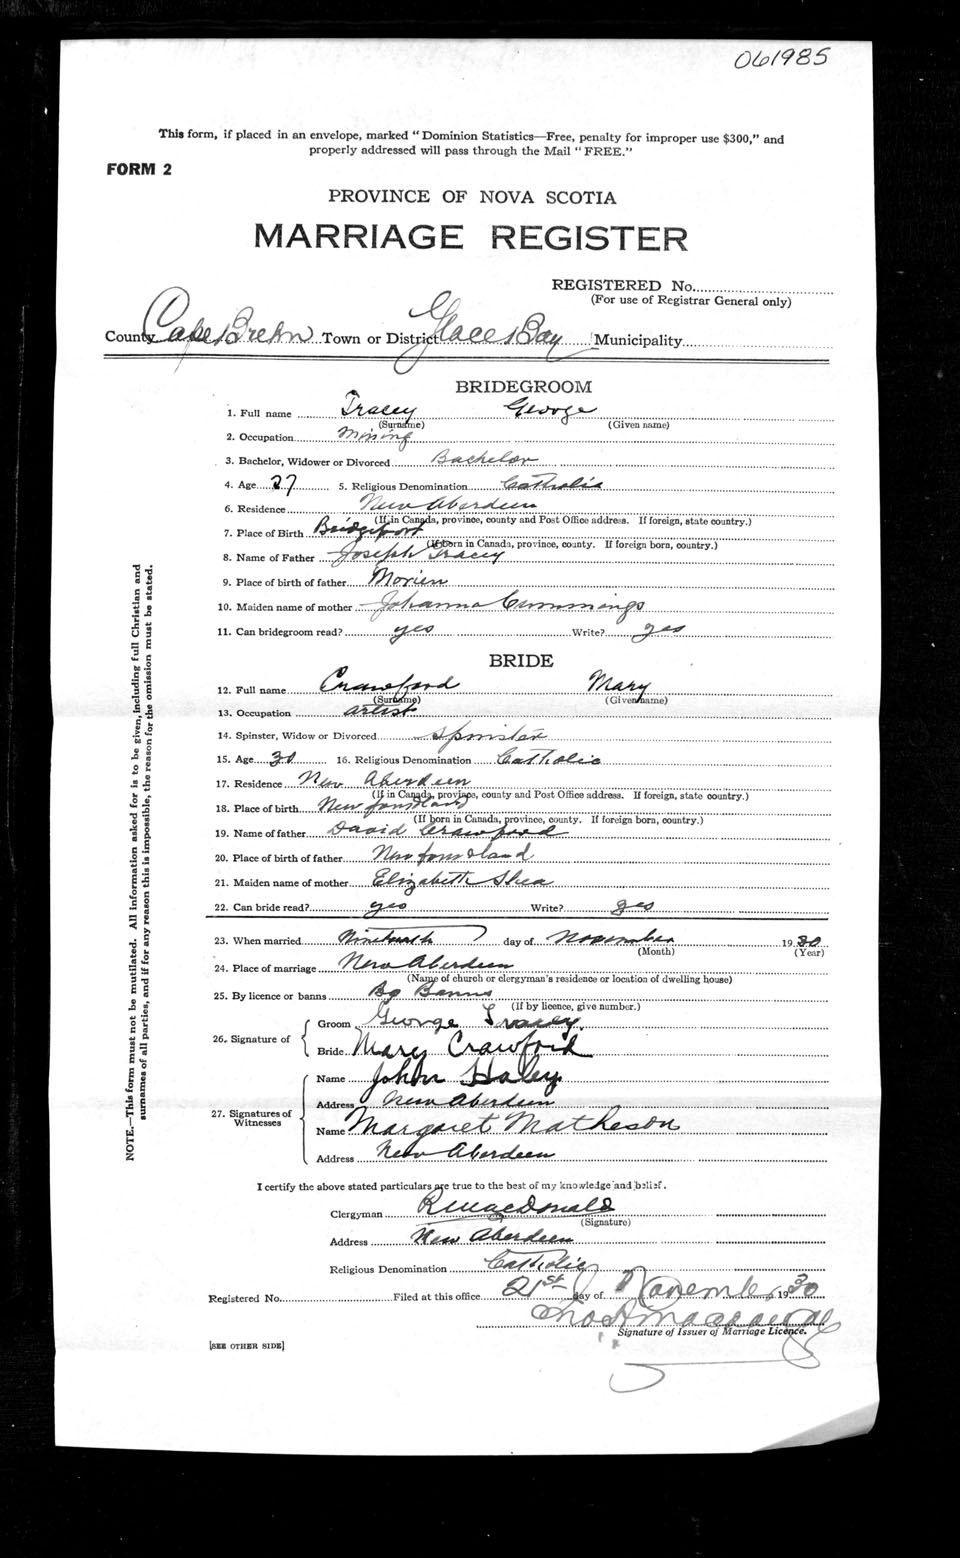 061985
This form, if placed in an envelope, marked "Dominion Statistics—Free, penalty for improper use $300," and
properly addressed will pass through the Mail "FREE."
FORM 2
PROVINCE OF NOVA SCOTIA
MARRIAGE REGISTER
REGISTERED No.
(For use of Registrar General only)
County Cape Breton Town or District Glace Bay Municipality
BRIDEGROOM
1. Full name Tracey George
(Surname) (Given name)
2. Occupation Mining
3. Bachelor, Widower or Divorced Bachelor
4. Age 27 5. Religious Denomination Catholic
6. Residence New Aberdeen
(If in Canada, province, county and Post Office address. If foreign, state country.)
7. Place of Birth Bridgeport
(If born in Canada, province, county. If foreign born, country.)
8. Name of Father Joseph Tracey
9. Place of birth of father Morien
10. Maiden name of mother Johanna Cummings
11. Can bridegroom read? yes Write? yes
BRIDE
12. Full name Crawford Mary
(Surname) (Given name)
13. Occupation artist
14. Spinster, Widow or Divorced Spinster
15. Age 30 16. Religious Denomination Catholic
17. Residence New Aberdeen
(If in Canada, province, county and Post Office address. If foreign, state country.)
18. Place of birth Newfoundland
(If born in Canada, province, county. If foreign born, country.)
19. Name of father David Crawford
20. Place of birth of father Newfoundland
21. Maiden name of mother Elizabeth Shea
22. Can bride read? yes Write? yes
23. When married Nineteenth day of November 1930
(Month) (Year)
24. Place of marriage New Aberdeen
(Name of church or clergyman's residence or location of dwelling house)
25. By licence or banns By Banns
(If by licence, give number.)
26. Signature of
Groom George Tracey
Bride Mary Crawford
27. Signatures of Witnesses
Name John Haley
Address New Aberdeen
Name Margaret Matheson
Address New Aberdeen
I certify the above stated particulars are true to the best of my knowledge and belief.
Clergyman R Macdonald
(Signature)
Address New Aberdeen
Religious Denomination Catholic
Registered No. Filed at this office 21st day of November 1930
Signature of Issuer of Marriage Licence.
[SEE OTHER SIDE]
NOTE.—This form must not be mutilated. All information asked for is to be given, including full Christian and
surnames of all parties, and if for any reason this is impossible, the reason for the omission must be stated.